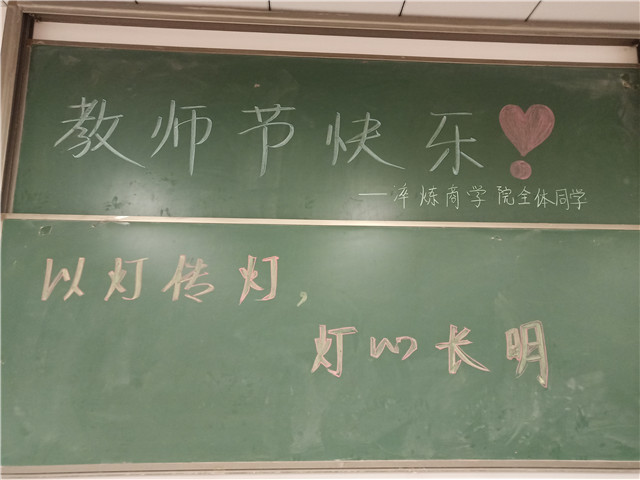 教师节快乐
——淬炼商学院全体同学
以灯传灯,
灯心长明